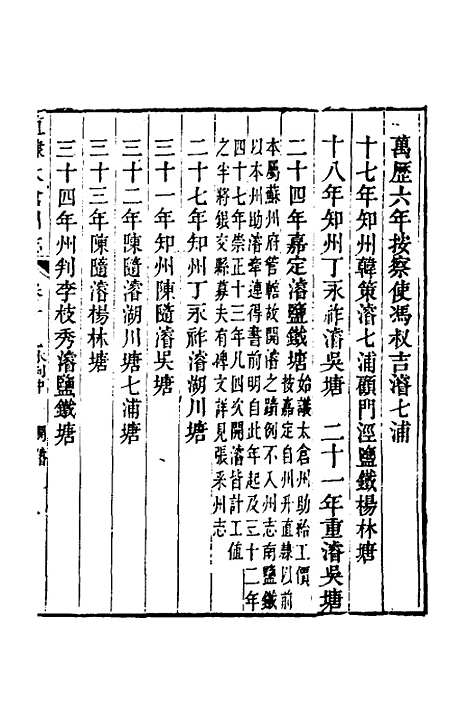 萬歷六年按察使馮叔吉濬七浦
十七年知州韓策濬七浦顧門涇鹽鐵楊林塘
十八年知州丁永祚濬吳塘　二十一年重濬吳塘
二十四年嘉定濬鹽鐵塘始議太倉州助給工價
按嘉定自州升直隸以前
本屬蘇州府管轄故開濬之蹟例不入州志南鹽鐵
以本州助濬牽連得書前明自此年起及三十二年
四十七年崇正十三年凡四次開濬皆計工值
之半將銀交縣募夫有碑文詳見張采州志
二十七年知州丁永祚濬湖川塘
三十一年知州陳隨濬吳塘
三十二年陳隨濬湖川塘七浦塘
三十三年陳隨濬楊林塘
三十四年州判李枝秀濬鹽鐵塘
直隸太倉州志